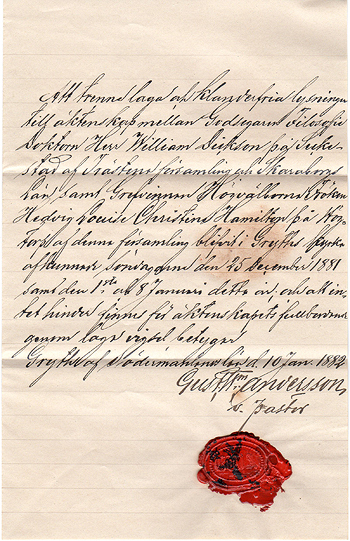 Att trenne laga och klanderfria lysningar
till äktenskap mellan Godsegaren Filosofie
Doktorn Herr William Dickson på
af församling och Skaraborgs
Län, samt Grefvinnan Högvälborna Fröken
Hedvig Louise Christine Hamilton på
af denna församling blifvit i Gryths Kyrka
afkunnade söndagarne den 25 December 1881
samt den 1sta och 8 Januari detta år och att in-
tet hinder finnes för äktenskapets fullbordande
genom laga vigsel betygar
Gryths af Södermanlands län d. 10 Jan. 1882
Gust. Wm Andersson
v. pastor